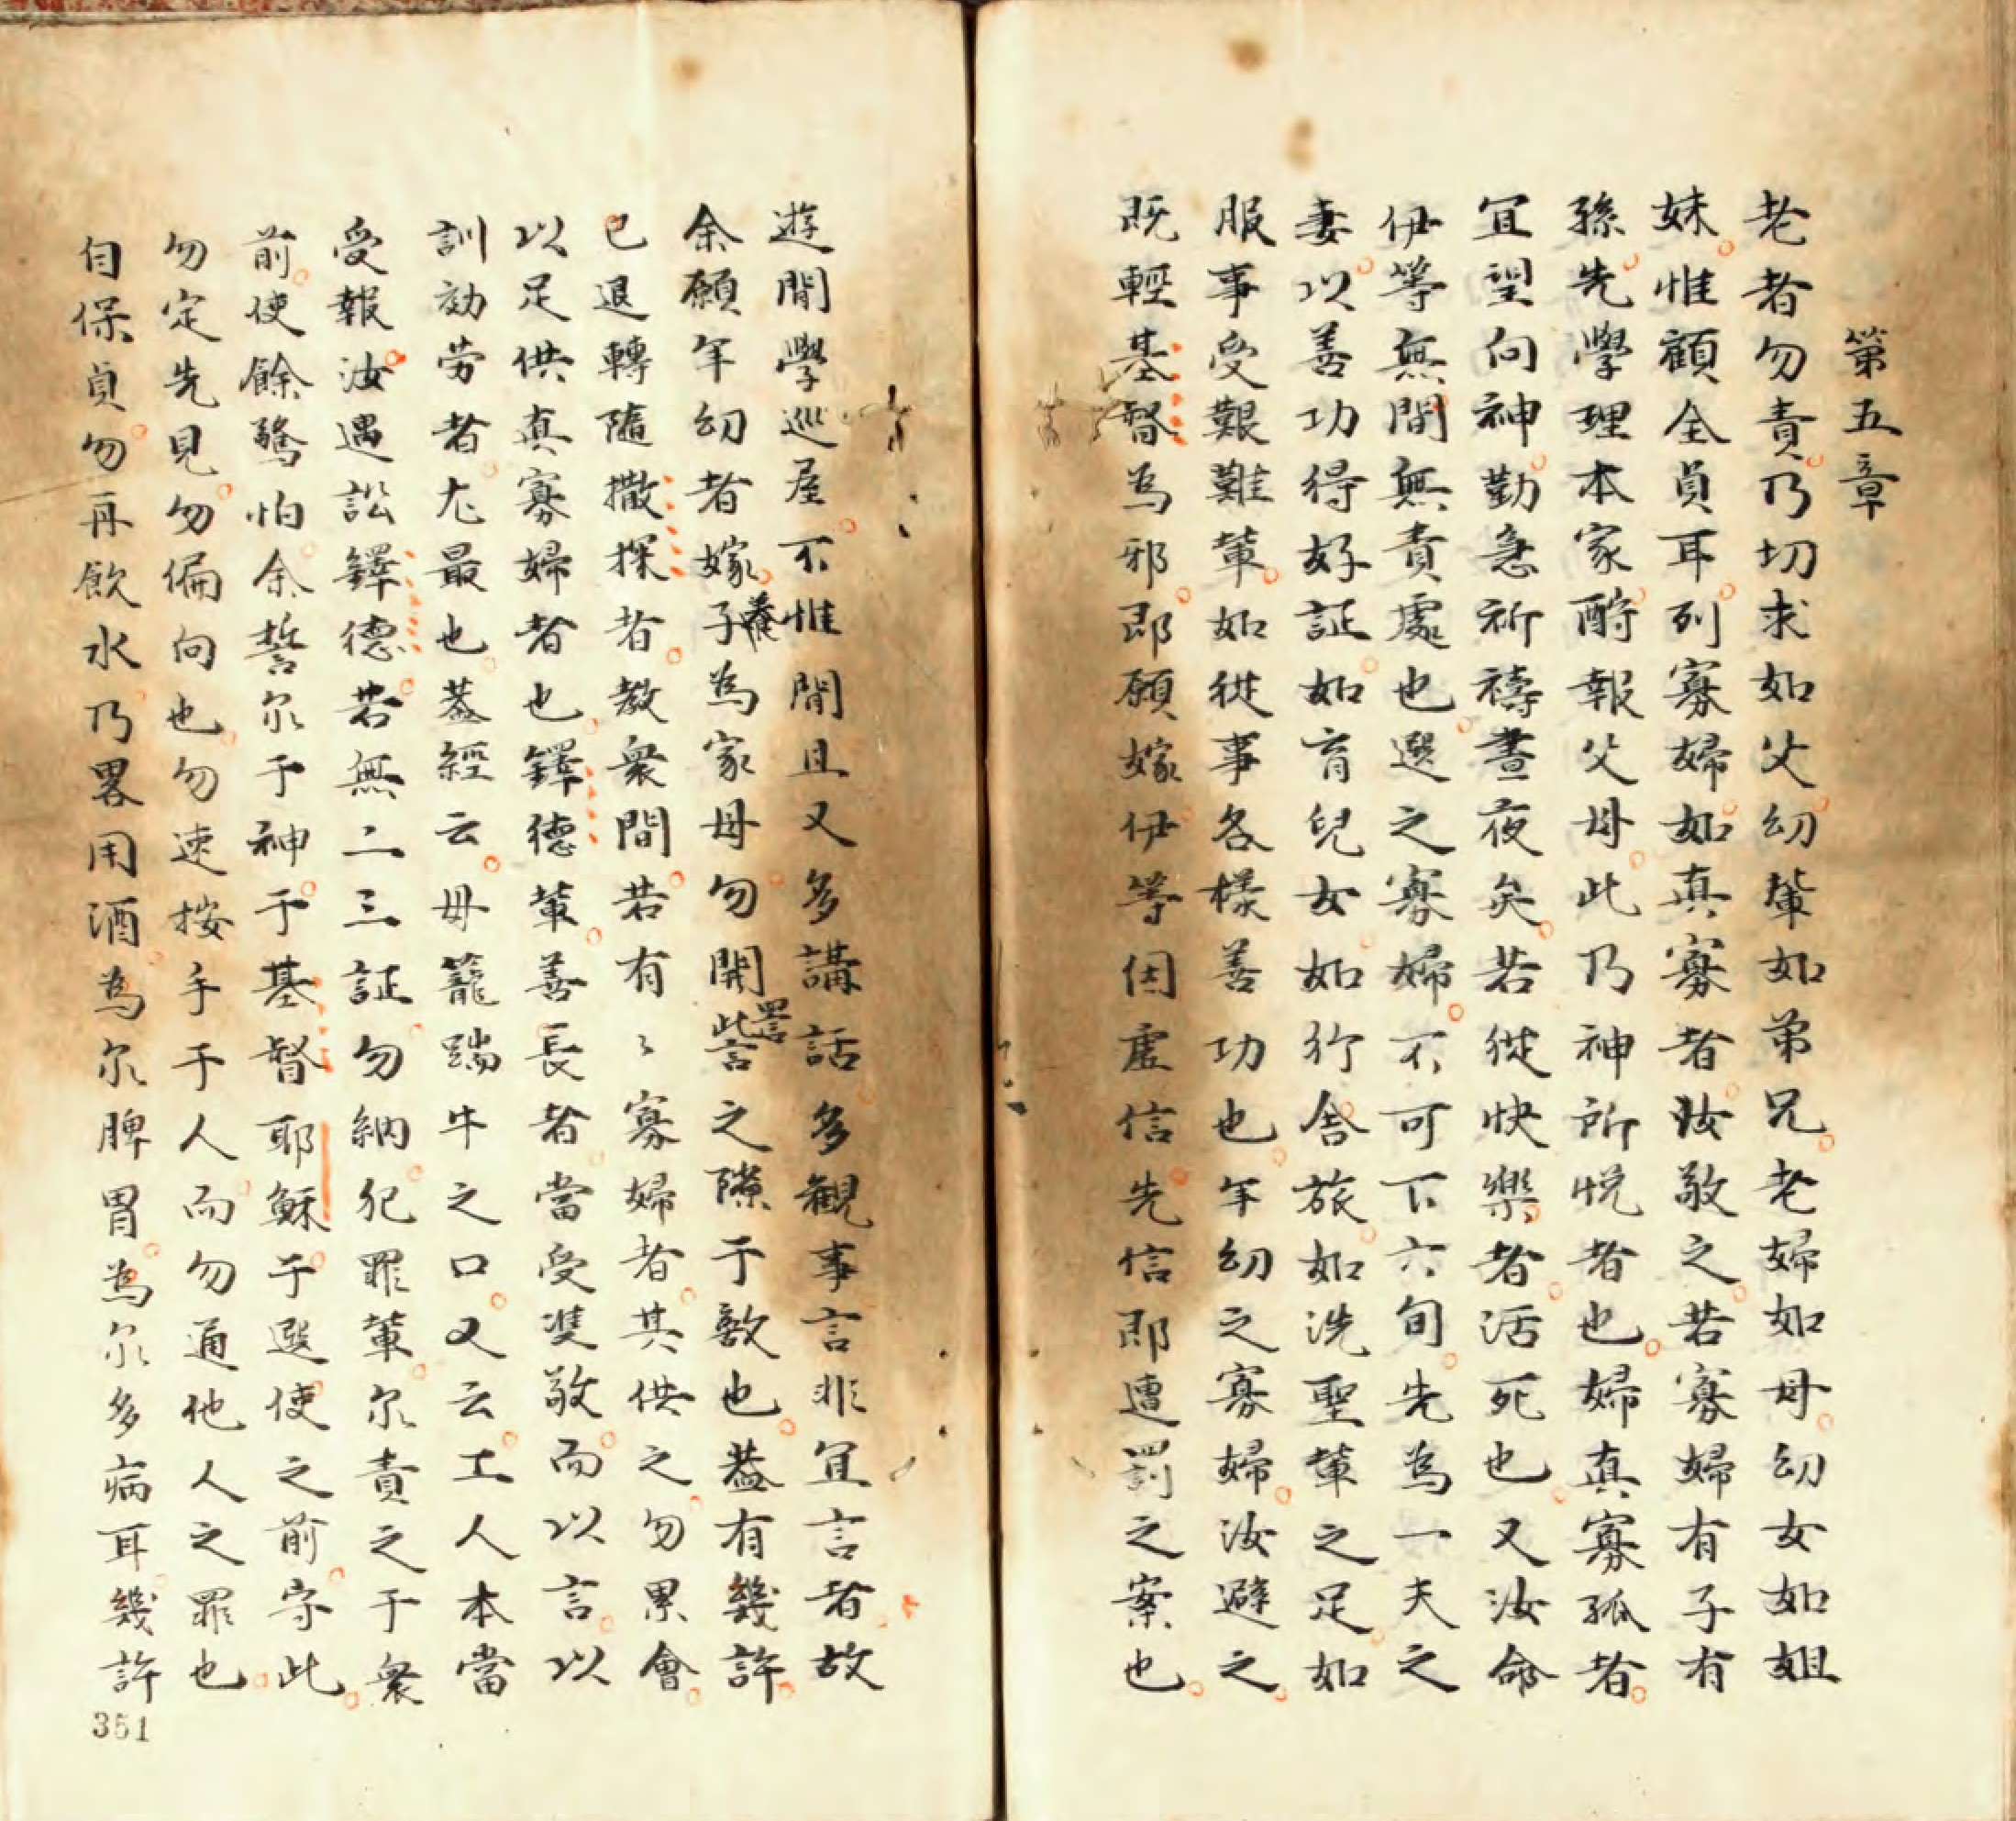 第五章
老者勿責乃切求如父幼輩如弟兄老婦如母幼女如姐
妹惟顧全貞耳列寡婦如真寡者汝敬之若寡婦有子有
孫先學理本家酧報父母此乃神所悅者也婦真寡孤者
宜望向神勤急祈禱晝夜矣若從快樂者活死也又汝命
伊等無間無責處也選之寡婦不可下六旬先為一夫之
妻以善功得好証如育兒女如行舍旅如洗聖輩之足如
服事受艱難輩如從事各樣善功也年幼之寡婦汝避之
既輕基督為邪即願嫁伊等因虛信先信即遭罰之案也
遊閒學巡屋不惟閒且又多講話多觀事言非宜言者故
余願年幼者嫁養子為家母勿開此詈言之隙于敵也蓋有幾許
已退轉隨撒探者教衆間若有〻寡婦者其供之勿累會
以足供真寡婦者也鐸德輩善長者當受雙敬而以言以
訓効劳者尤最也蓋經云毋籠踹牛之口又云工人本當
受報汝遇訟鐸德若無二三証勿納犯罪輩尔責之于衆
前使餘驚怕余誓尔于神于基督耶穌于選使之前守此
勿定先見勿偏向也勿速按手于人而勿通他人之罪也
自保貞勿再飲水乃畧用酒為尔脾胃為尔多病耳幾許
351